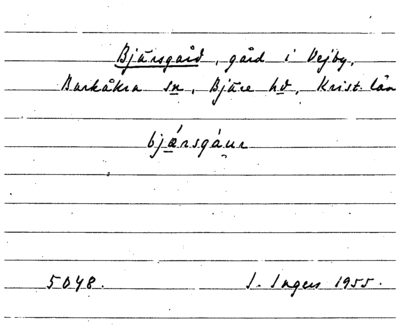 Bjärsgård, gård i Vejby,
Barkåkra sn, Bjäre hd, Krist. län
bjǽrsgáur
5048. I. Ingers 1955.